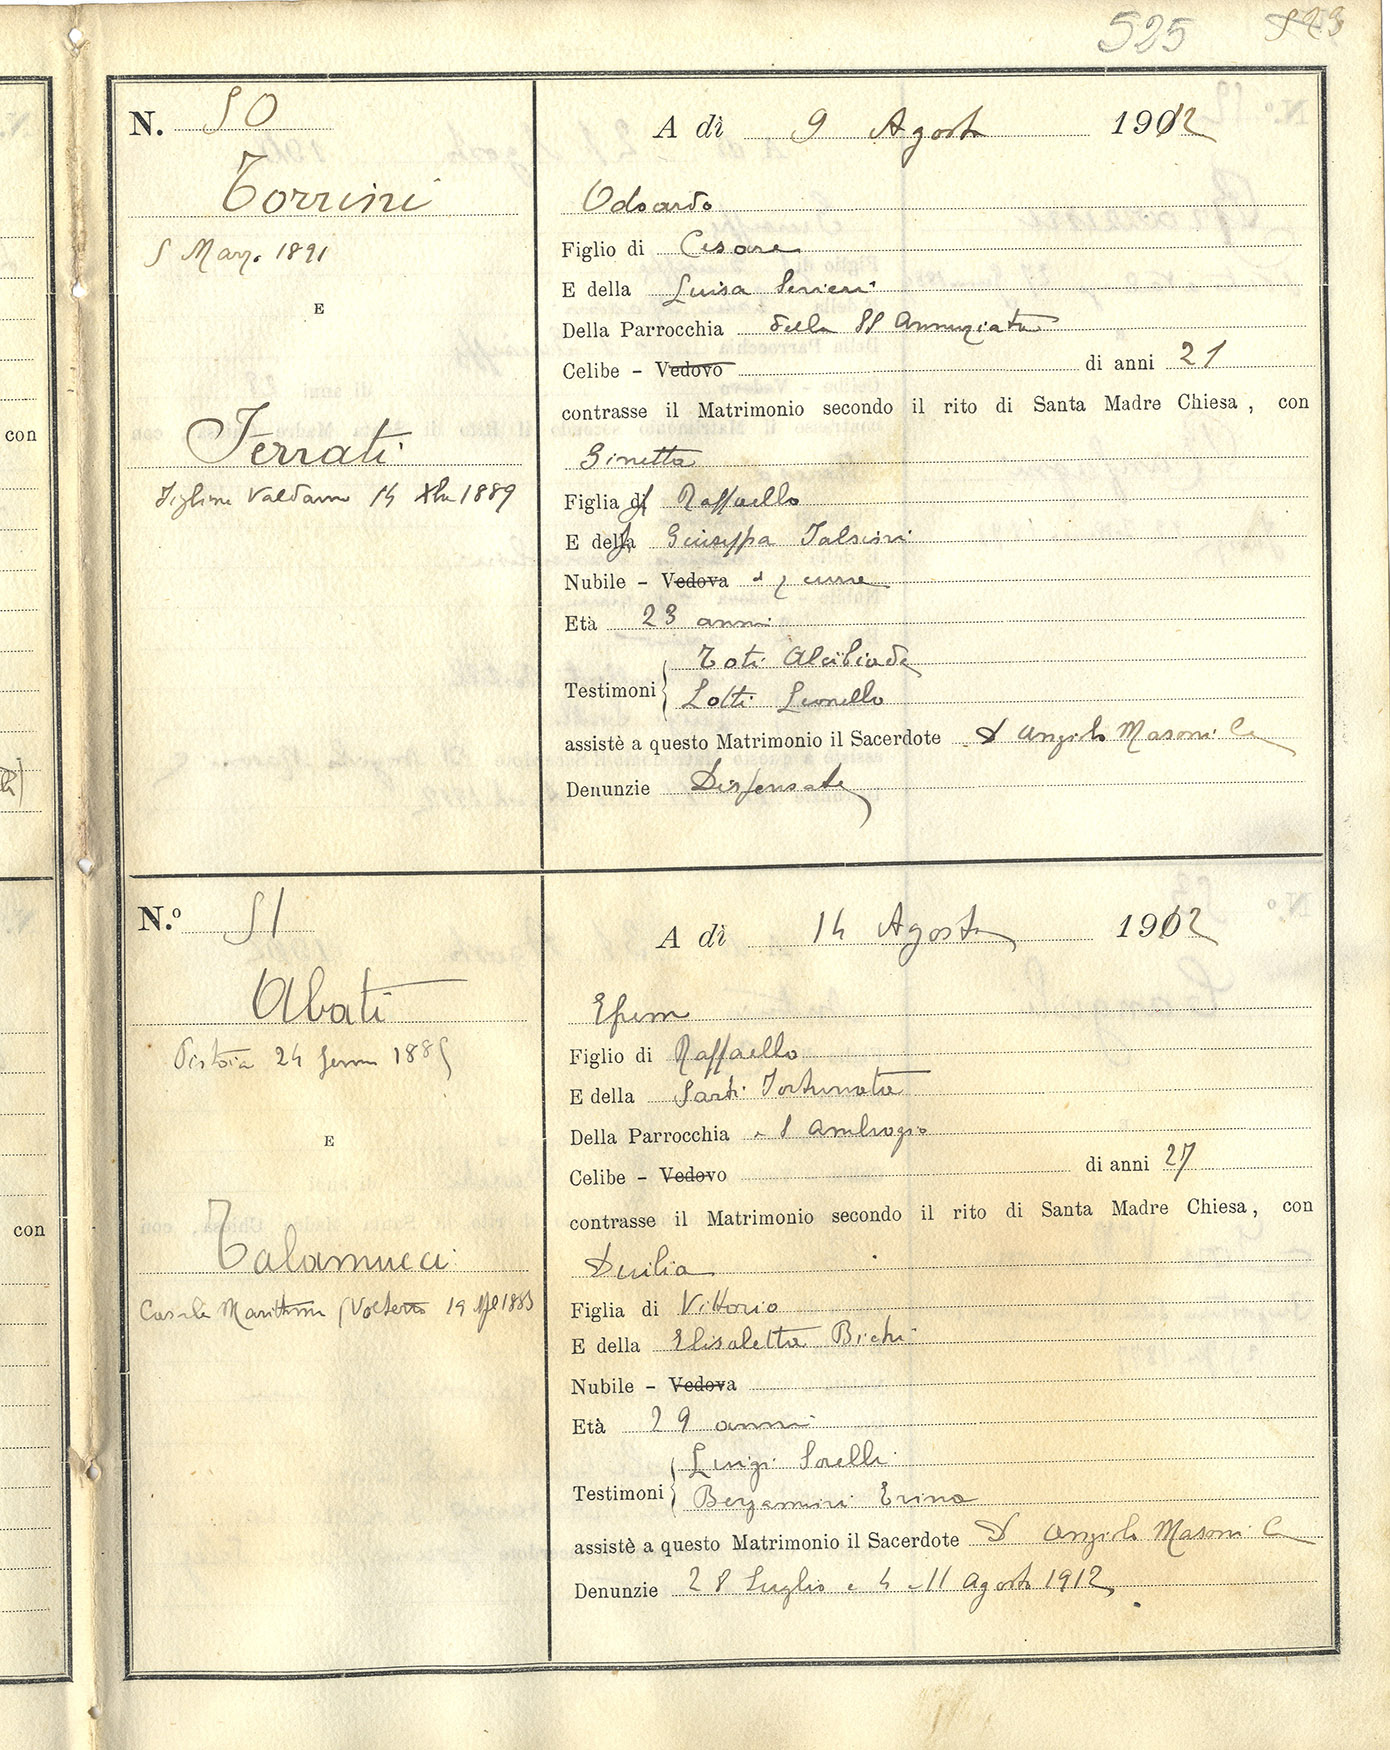 525 523
N. 50
Torrini
5 Marz. 1891
E
Ferrati
Figline Valdarno 14 Xbre 1889
A dì 9 Agosto 1912
Odoardo
Figlio di Cesare
E della Luisa Serieri
Della Parrocchia della SS Annunziata
Celibe - Vedovo di anni 21
contrasse il Matrimonio secondo il rito di Santa Madre Chiesa, con
Ginetta
Figlia di Raffaello
E della Giuseppa Falsini
Nubile - Vedova di q cura
Età 23 anni
Toti Alcibiade
Testimoni
Lotti Leonello
assistè a questo Matrimonio il Sacerdote D Angiolo Masoni C
Denunzie Dispensate
con
N.º 51
Abati
Pistoia 24 Genn 1885
E
Talamucci
Casale Marittimo (Volterra 19 1883
A dì 14 Agosto 1912
Efrem
Figlio di Raffaello
E della Sarti Fortunata
Della Parrocchia S Ambrogio
Celibe - Vedovo di anni 27
contrasse il Matrimonio secondo il rito di Santa Madre Chiesa, con
Duilia
Figlia di Vittorio
E della Elisabetta Bichi
Nubile - Vedova
Età 29 anni
Luigi Sorelli
Testimoni
Benzamini Erina
assistè a questo Matrimonio il Sacerdote D Angiolo Masoni C
Denunzie 28 Luglio e 4 e 11 Agosto 1912
con